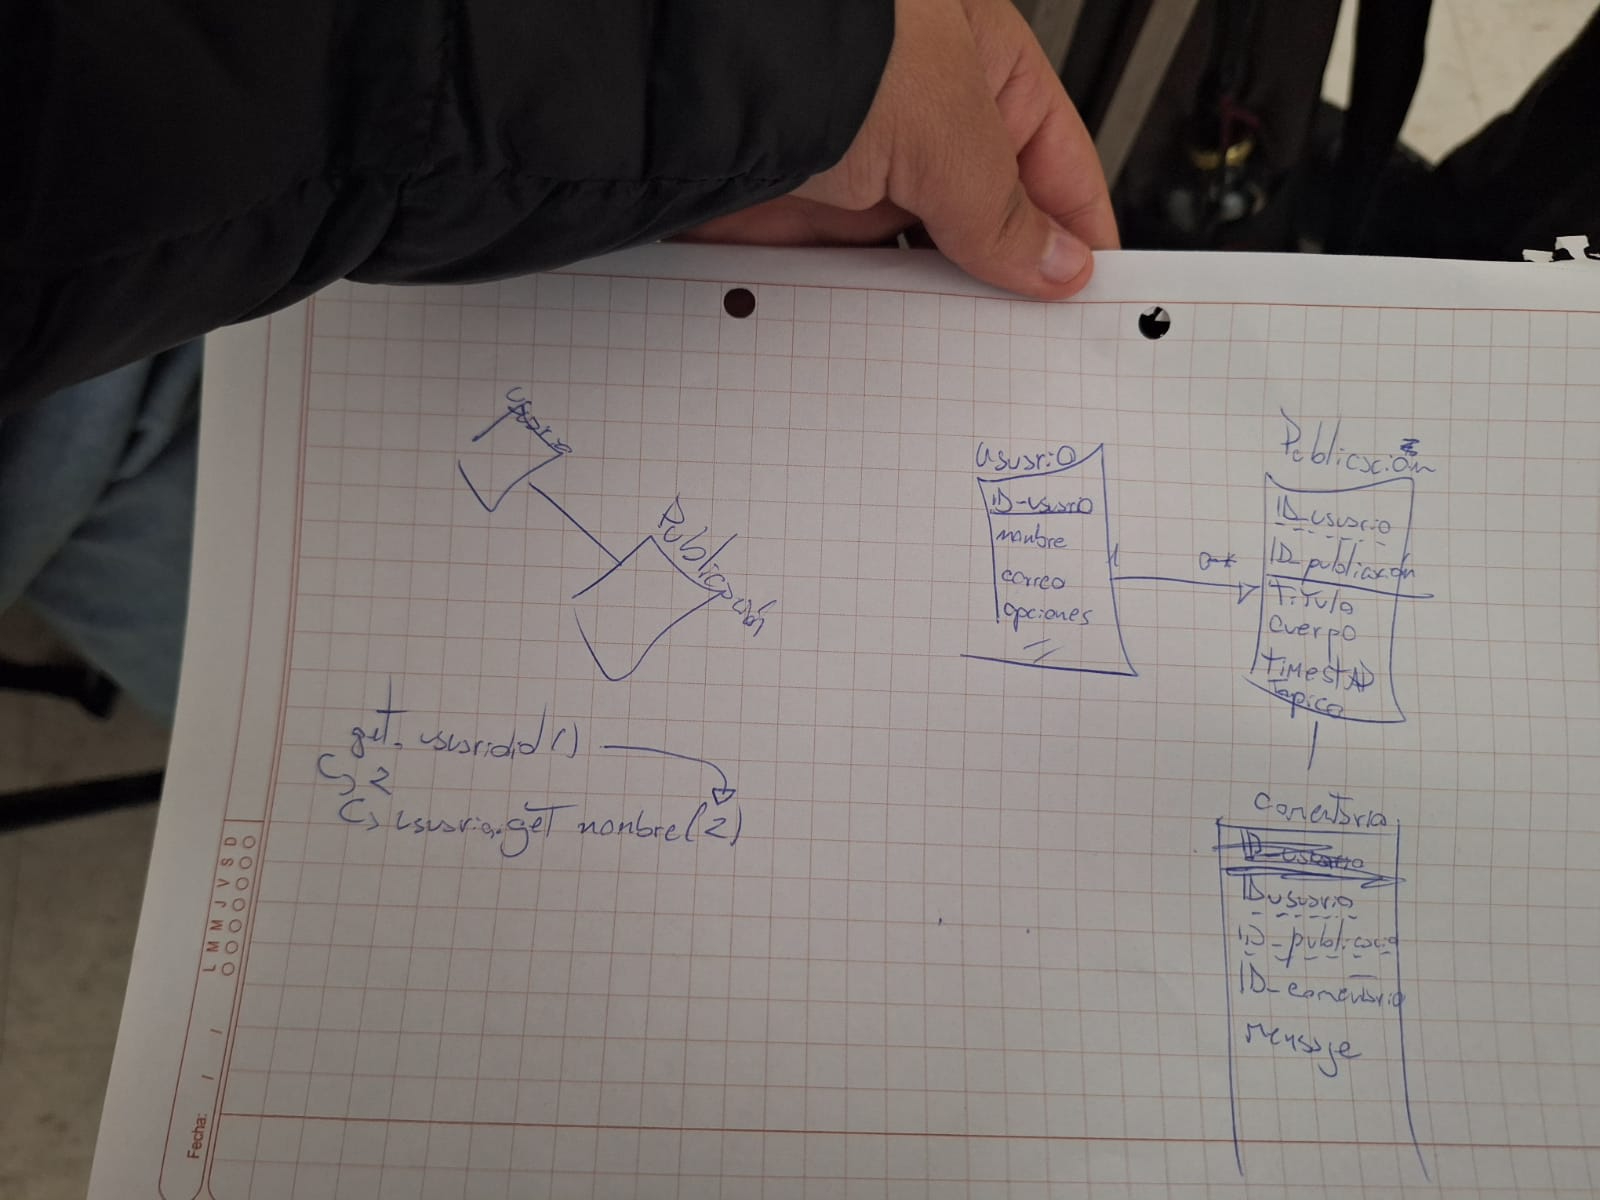 usuario
Publicación
get. usuarioid()
2
usuario.get nombre(2)
usuario
ID-usuario
nombre
correo
opciones
1
0-*
Publicación
ID_usuario
ID_publicación
Titulo
Cuerpo
Topico
Comentario
ID_usuario
ID usuario
ID_publicació
ID_comentario
mensaje
L M M J V S D
Fecha: / /